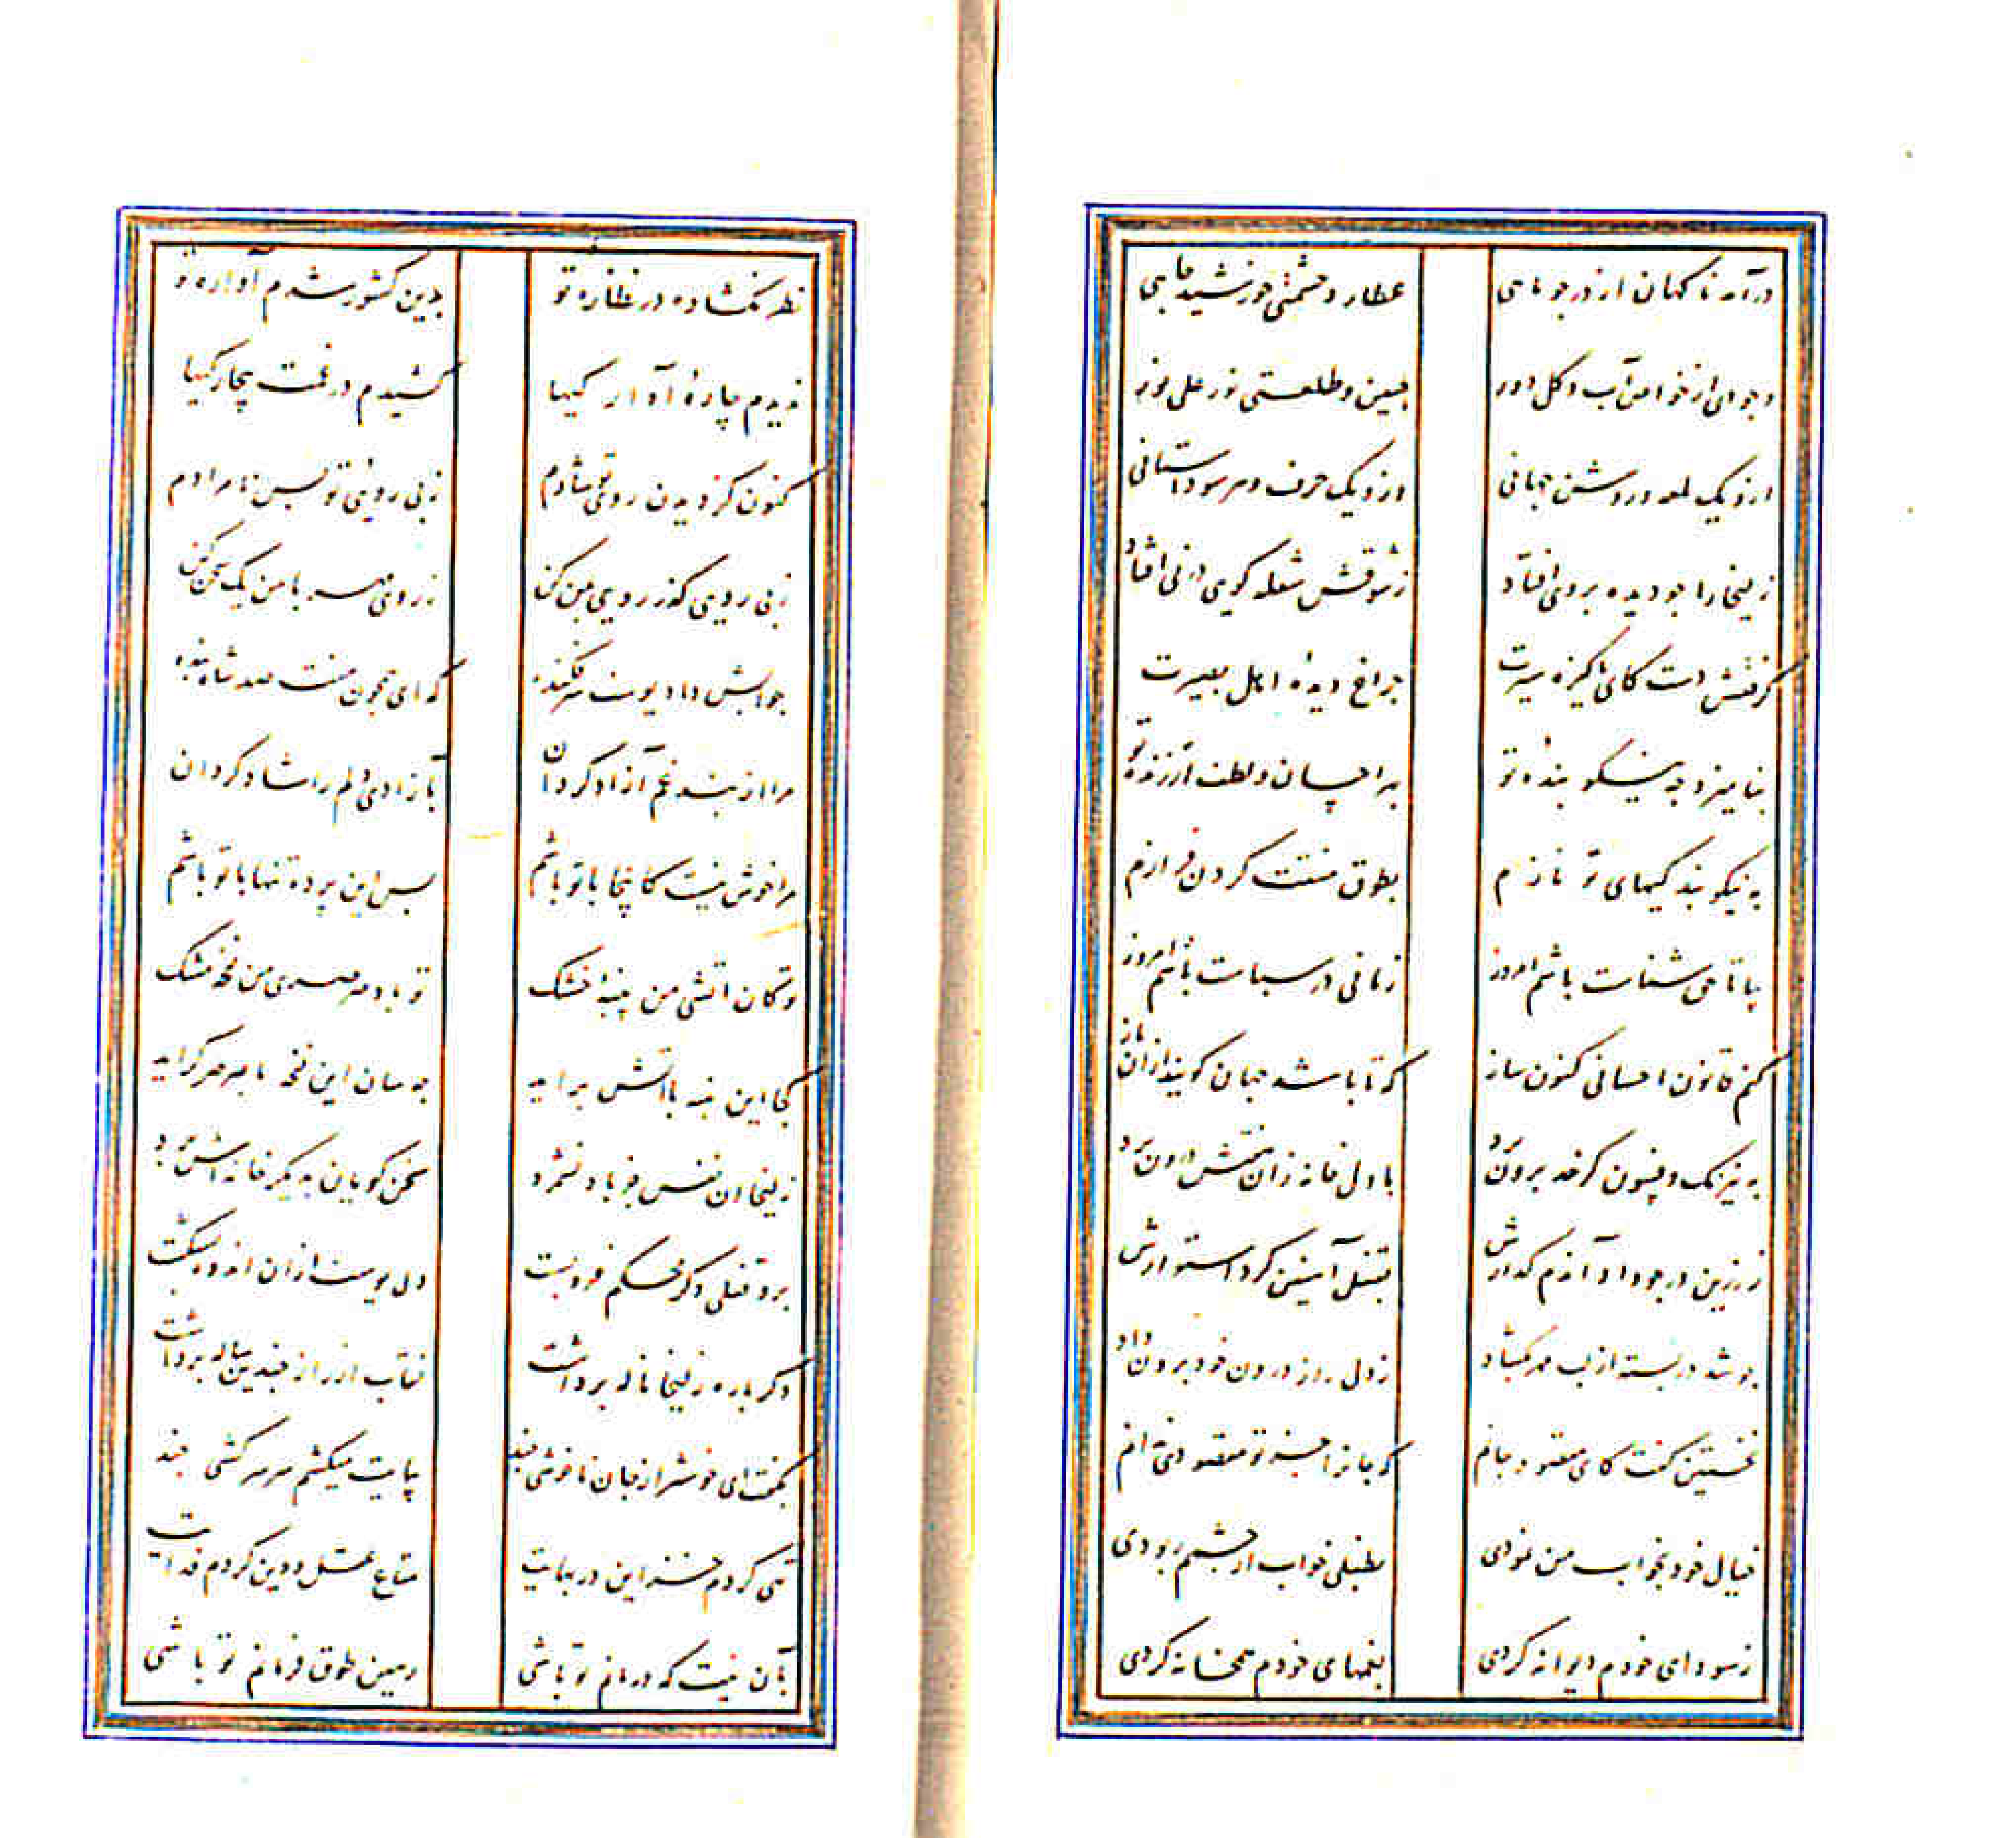 درآمد ناگهان از در چو ماهی عطارد حشمتی خورشید جاهی
وجودی از خواص آب و گل دور جبین و طلعتی نور علی نور
ازو یک لمعه و روشن جهانی وزو یک حرف و هر سو داستانی
زلیخا را چو دیده بر وی افتاد ز شوقش شعله گویی در نی افتاد
گرفتش دست کای پاکیزه سیرت چراغ دیده اهل بصیرت
بنامیزد چه نیکو بنده تو به احسان و لطف ارزنده تو
به نیکو بندگیهای تو نازم بطوق منتت گردن فرازم
بیا تا حق شناست باشم امروز زمانی در سپاست باشم امروز
کنم قانون احسانی کنون ساز که تا باشد جهان گویند ازان باز
به نیرنگ و فسون کز حد برون برد باول خانه زان هفتش درون برد
ز زرین در چو داد آندم گذارش بقفل آهنین کرد استوارش
چو شد در بسته از لب مهر بگشاد ز دل راز درون خود برون داد
نخستین گفت کای مقصود جانم که جانرا جز تو مقصودی ندانم
خیال خود بخواب من نمودی بطفلی خواب از چشمم ربودی
ز سودای خودم دیوانه کردی بغمهای خودم همخانه کردی
نظر نگشاده در نظاره تو بدین کشور شدم آواره تو
ندیدم چاره آوارگیها کشیدم در غمت بیچارگیها
کنون کز دیدن روی تو شادم ز بی رویی تو بس نامرادم
ز بی رویی گذر روی بمن کن ز روی مهر با من یک سخن کن
جوابش داد یوسف سر فکنده که ای همچون منت صد شاه بنده
مرا از بند غم آزاد گردان بآزادی دلم را شاد گردان
مرا خوش نیست کاینجا با تو باشم پس این پرده تنها با تو باشم
تو کان آتشی من پنبه خشک تو باد صرصری من نفحه مشک
کجا این پنبه با آتش برآید چه سان این نفحه با صرصر گراید
زلیخا آن نفس جز باد نشمرد سخن گویان به دیگر خانه اش برد
برو قفلی دگر محکم فروبست دل یوسف ازان اندوه بشکست
دگر باره زلیخا ناله برداشت نقاب از راز چندین ساله برداشت
بگفت ای خوشتر از جان ناخوشی چند بپایت میکشم سر سرکشی چند
تهی کردم خزاین در بهایت متاع عقل و دین کردم فدایت
بآن نیت که درمانم تو باشی رهین طوق فرمانم تو باشی